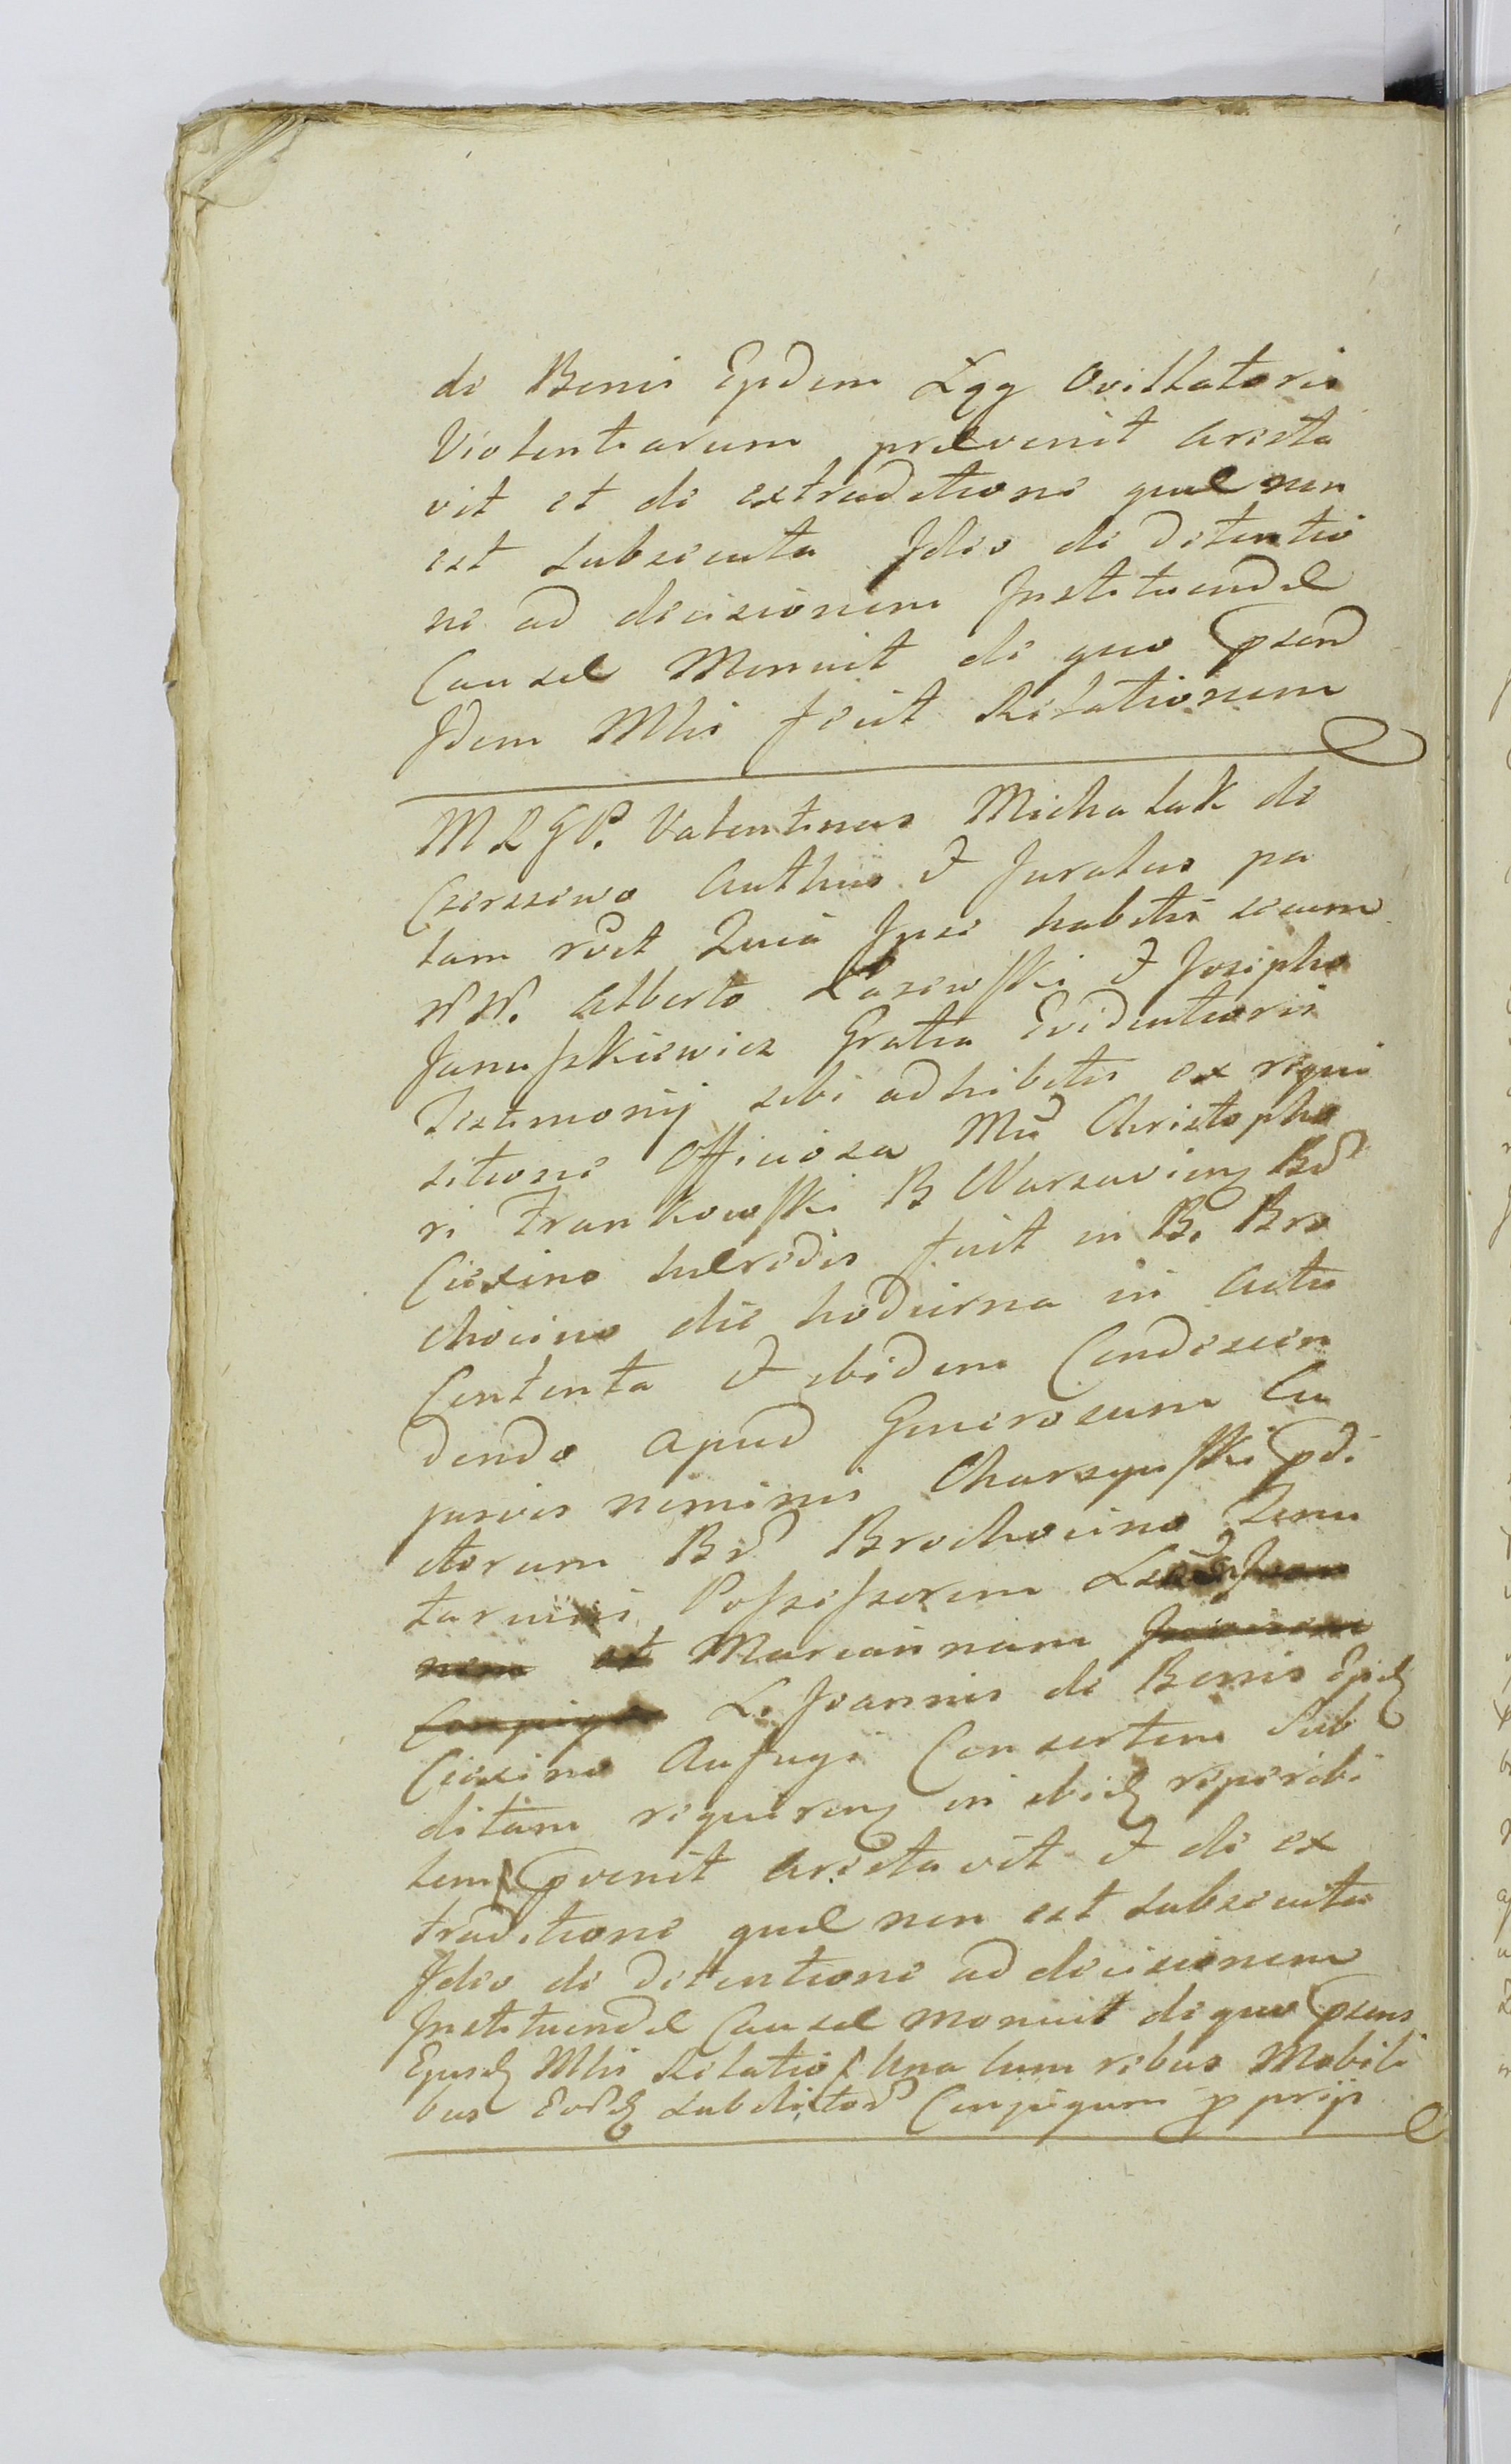 de Bonis Ejsdem Lgg Avillatoris
Violentiarum prævenit Aresta
vit et de extraditione quæ non
est subsecuta Ideo de Detentio
ne ad decisionem Instituendæ
Causæ Monuit de quo psend
Idem Mlis fecit Relationem
M R G P. Valentinus Michalak de
Czerszewo Authus & Juratus pa
lam rčit Quia Ipse habitis secum
NN. Alberto Lasewski & Josepho
Januszkiewicz Gratia Evidentioris
Testimonij sibi adhibitis ex requi
sitione Officiosa Mci Christopho
ri Frankowski B Warsavien Brt
Ciexino hæredis fuit in B. Bro
chocino die hodierna in Actu
Contenta & ibidem Condescen
dendo apud Generosum Cu
jusvis nominis Charzynski pdi
ctorum Brt Brochocino Tenu
tarium Possessorem
nem et Mariannam
L. Joannis de Bonis Ejsd
Ciexino Aufugi Consortem Sub
ditam requiren in ibid reperibi
lem pvenit Arestavit & de ex
traditione quæ non est subsecuta
Ideo de Detentione ad decisionem
Instituendæ Causæ monuit de quo psens
Ejusd Mlis Relatio / Una cum rebus Mobili
bus Eord subditor Conjugum pprijs